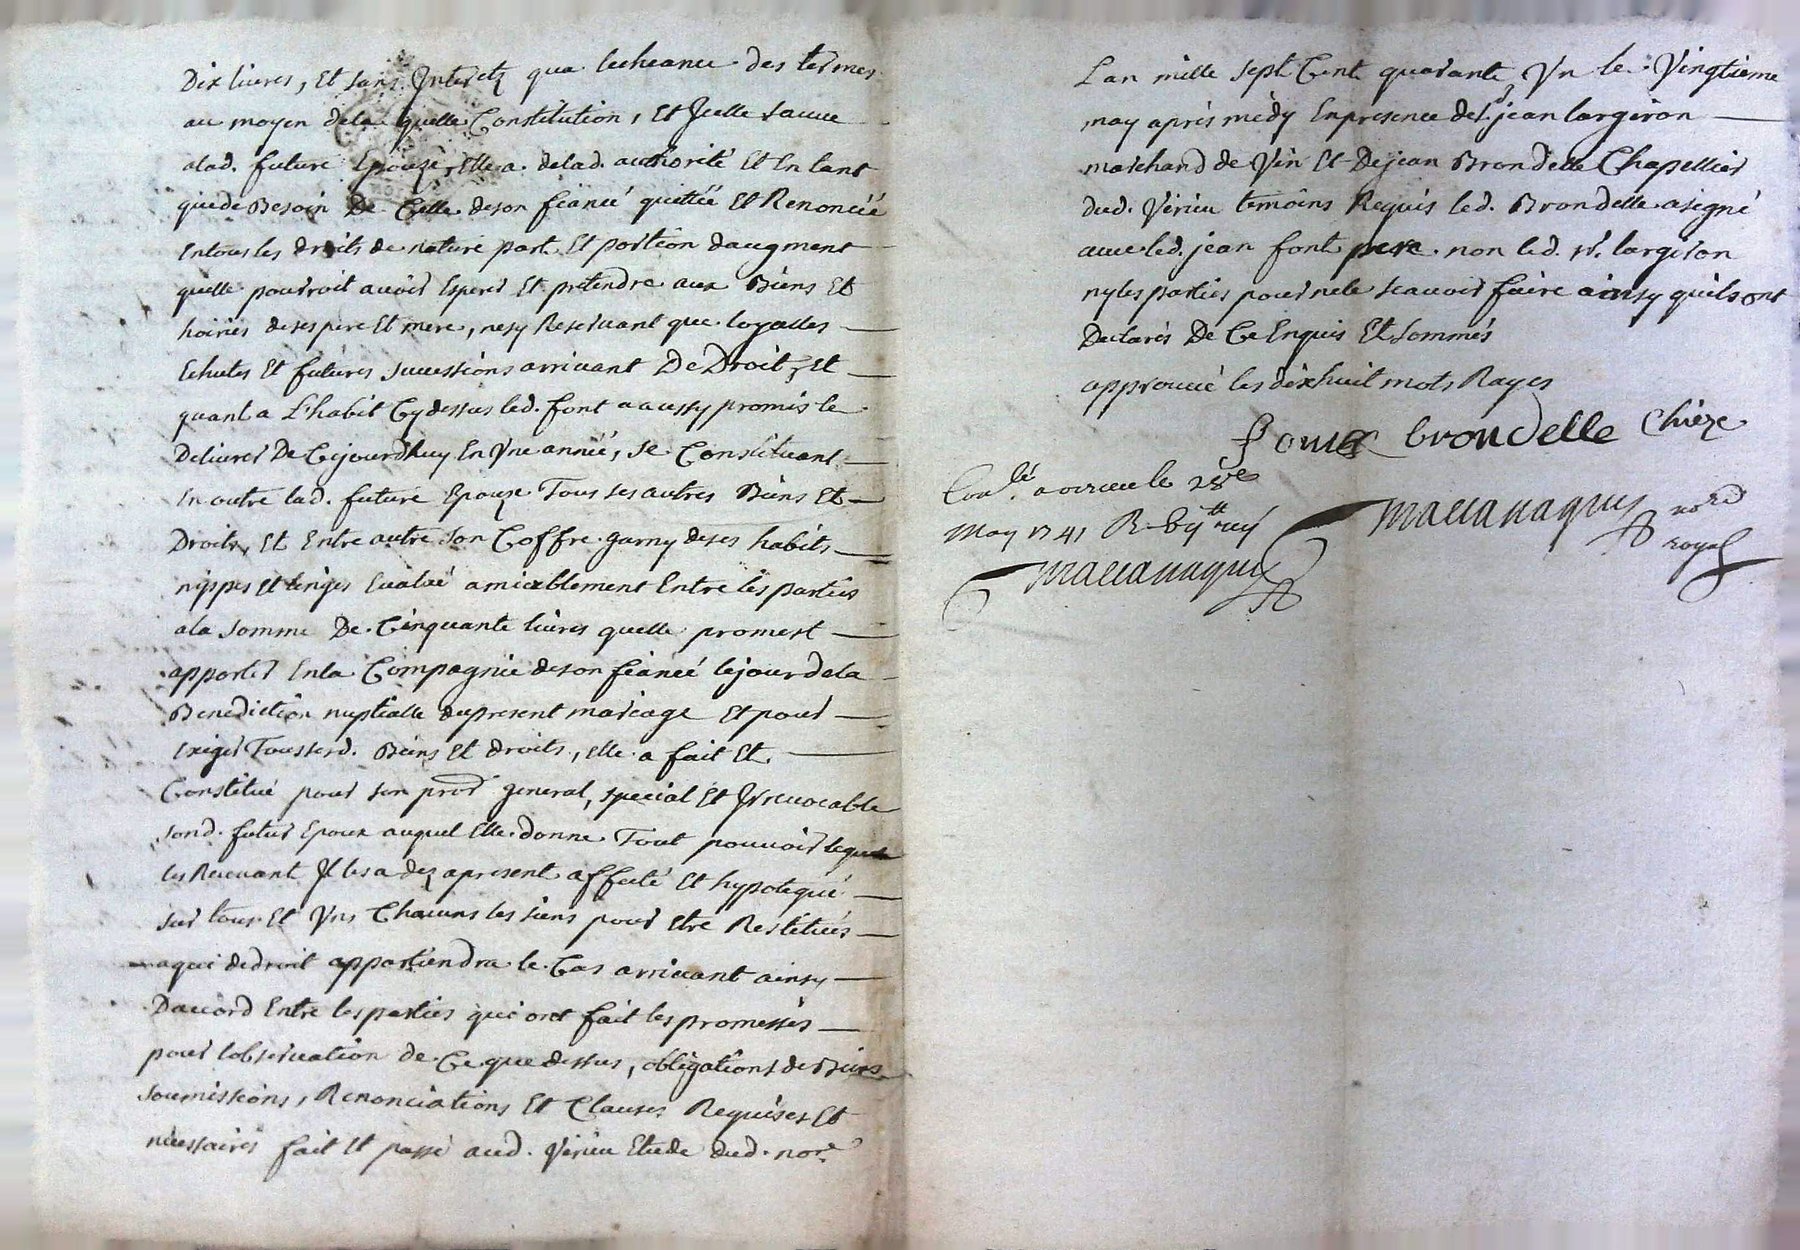 Dix livres, Et sans Interetz qua lecheance des termes
au moyen dela quelle Constitution, Et Jcelle sauve
alad. future Epouze, Elle a delad. authorité Et En tant
que de Besoin De Celle deson fiancé quittée Et Renoncée
Entous les droits de nature part Et portion daugment
quelle pourroit avoir Esperer Et pretendre aux Biens Et
hoiries deses pere Et mere, nesy Reservant que loyalles
Echutes Et futures successions arrivant De Droit, Et
quant a L'habit Cy dessus led. font a aussy promis le
Delivrer De Cejourdhuy En Vne année, se Constituant
En outre lad. future Epouze Tous ses autres Biens Et
Droits, Et Entre autre son Coffre garny deses habits
nippes Et linges Evalué amiablement Entre les parties
ala somme De Cinquante livres quelle promest
apporter Enla Compagnie deson fiancé lejour dela
Benediction nuptialle dupresent mariage Et pour
Exiger Tous sesd. Biens Et droits, Elle a fait Et
Constitué pour son prõr general, special Et Jrrevocable
sond. futur Epoux auquel Elle donne Tout pouvoir lequel
les Recevant Jl les a dez apresent affecté Et hypotequé
sur tous Et Vns Chacuns les siens pour Etre Restitués
aqui dedroit appartiendra le Cas arrivant ainsy
Daccord Entre lesparties qui ont fait les promesses
pour lobservation de Ce que dessus, obligations de Biens
soumissions, Renonciations Et Clauses Requises Et
necessaires fait Et passé aud. Virieu Etude dud. nore
Lan mille sept Cent quarante Vn le Vingtieme
may aprés midy Enpresence de sr. jean largeron
marchand de Vin Et Dejean Brondelle Chapellier
dud. Virieu temoins Requis led. Brondelle asigné
avec led. jean font pere non led. sr. largeron
nyles parties pour nele scavoir faire ainsy quils ont
Declarés De Ce Enquis Et Sommés
approuvé les dixhuit mots Rayes
font brondelle Chieze
Conlé a virieu le 28e
May 1741 R
nore
royal